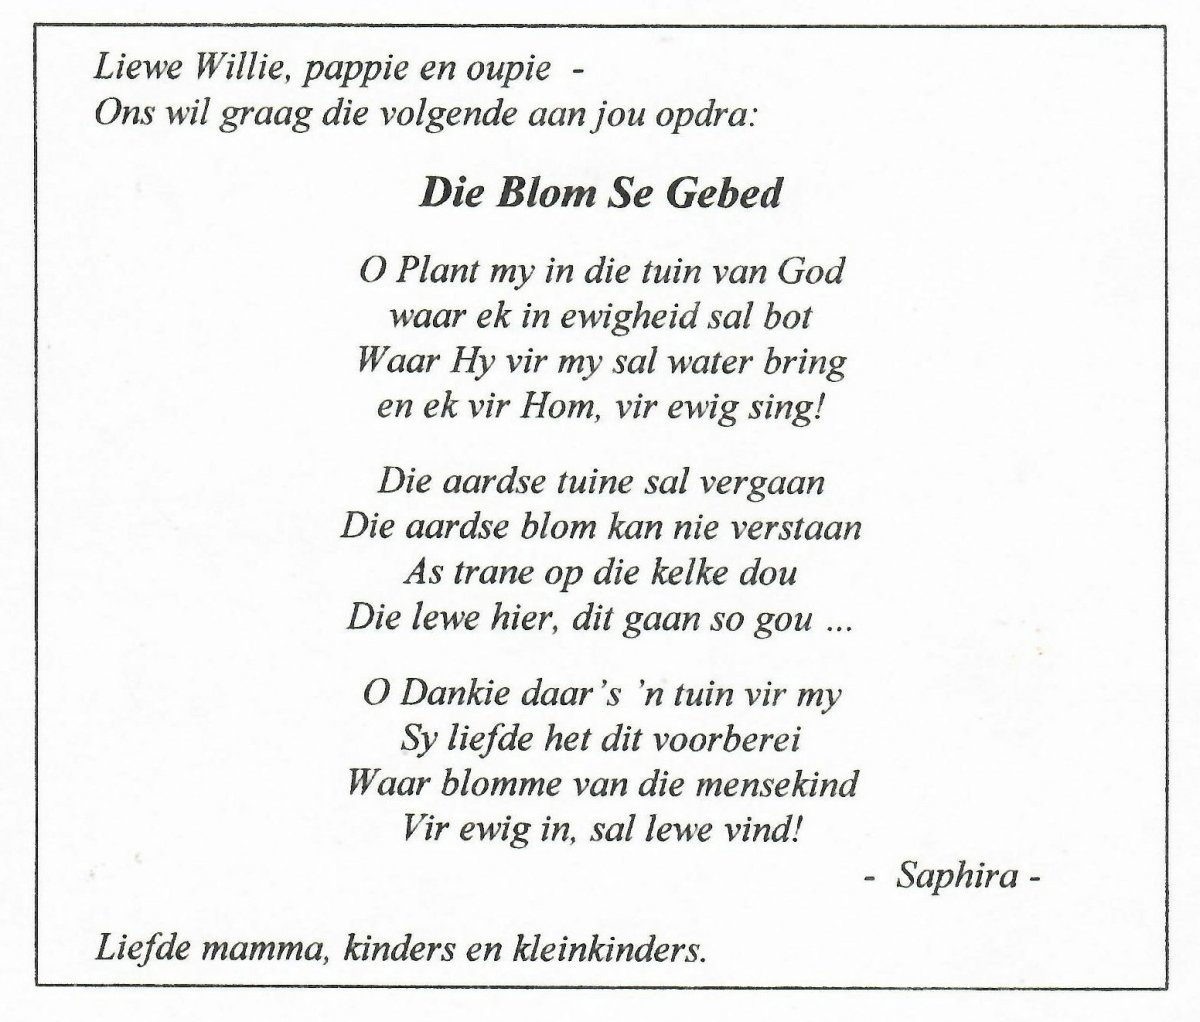 Liewe Willie, pappie en oupie -
Ons wil graag die volgende aan jou opdra:
Die Blom Se Gebed
O Plant my in die tuin van God
waar ek in ewigheid sal bot
Waar Hy vir my sal water bring
en ek vir Hom, vir ewig sing!
Die aardse tuine sal vergaan
Die aardse blom kan nie verstaan
As trane op die kelke dou
Die lewe hier, dit gaan so gou ...
O Dankie daar's 'n tuin vir my
Sy liefde het dit voorberei
Waar blomme van die mensekind
Vir ewig in, sal lewe vind!
- Saphira -
Liefde mamma, kinders en kleinkinders.